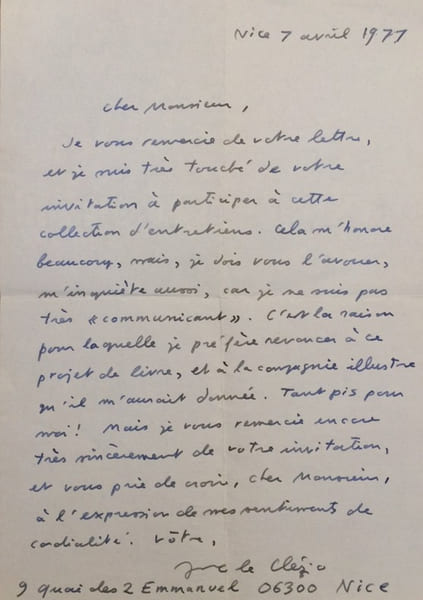 Nice 7 avril 1977
Cher Monsieur,
Je vous remercie de votre lettre,
et je suis très touché de votre
invitation à participer à cette
collection d'entretiens. Cela m'honore
beaucoup, mais, je dois vous l'avouer,
m'inquiète aussi, car je ne suis pas
très «communicant». C'est la raison
pour laquelle je préfère renoncer à ce
projet de livre, et à la compagnie illustre
qu'il m'aurait donnée. Tant pis pour
moi! Mais je vous remercie encore
très sincèrement de votre invitation,
et vous prie de croire, cher Monsieur,
à l'expression de mes sentiments de
cordialité. Vôtre,
le Clézio
9 quai des 2 Emmanuel 06300 Nice